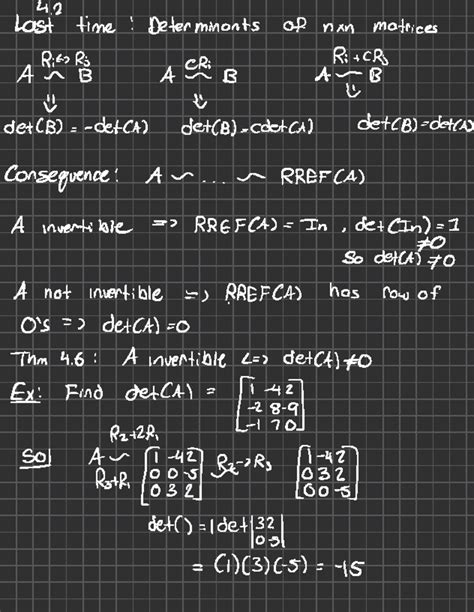 4.2
Last time: Determinants of nxn matrices
Ri↔Rj cRi Ri+cRj
A ~ B A ~ B A ~ B
⇓ ⇓ ⇓
det(B) = -det(A) det(B)=cdet(A) det(B)=det(A)
Consequence: A ~ ... ~ RREF(A)
A invertible => RREF(A) = In, det(In)=1
≠0
So det(A) ≠0
A not invertible => RREF(A) has row of
0's => det(A)=0
Thm 4.6: A invertible <=> det(A)≠0
Ex: Find det(A) = [1 -4 2
-2 8 -9
-1 7 0]
R2+2R1
Sol A ~ [1 -4 2 R2->R3 [1 -4 2
R3+R1 0 0 -5 0 3 2
0 3 2] 0 0 -5]
det() = 1det|3 2
0 -5|
= (1)(3)(-5) = -15